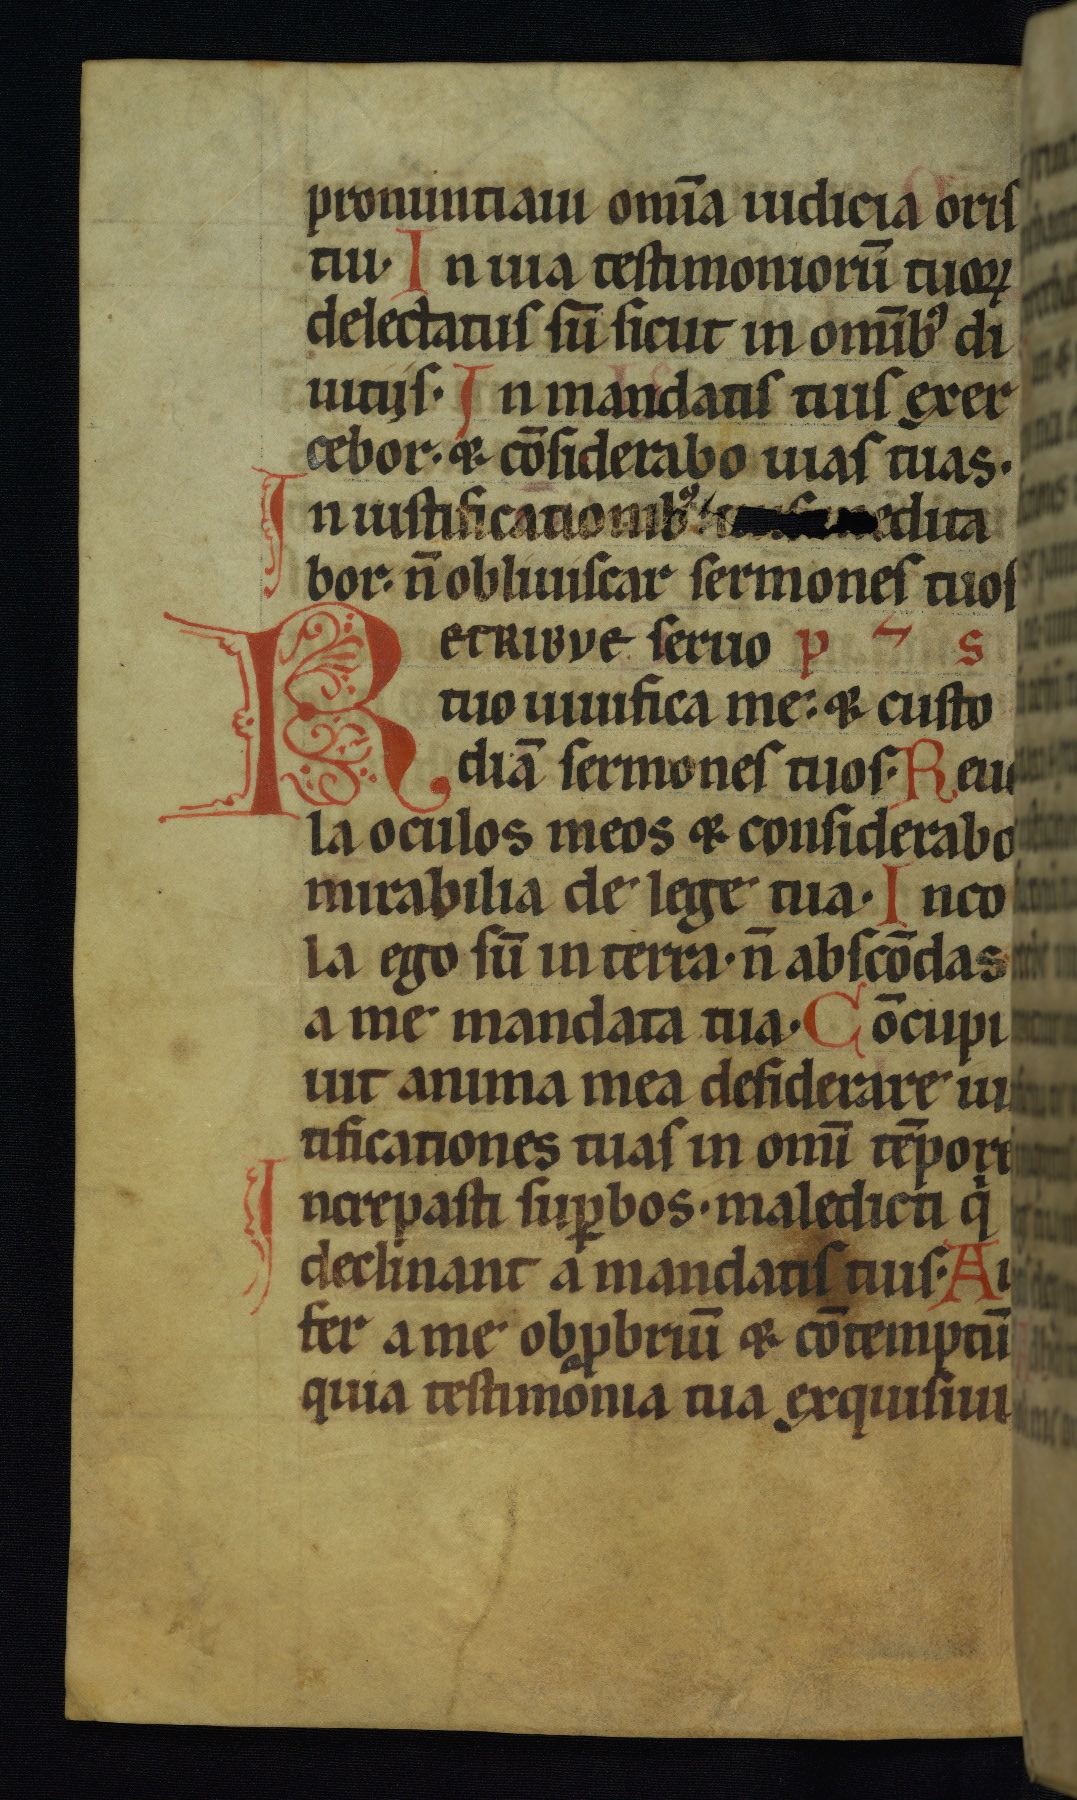 pronuntiaui om̄ia iudicia oris
tui· In uia testimoniorū tuoꝝ
delectatus sū sicut in om̄ibꝰ di
uitijs· In mandatis tuis exer
cebor· & cōsiderabo uias tuas·
In iustificationibꝰ edita
bor· n̄ obliuiscar sermones tuos
RETRIBVE seruo p s
tuo uiuifica me· & custo
diā sermones tuos· Reue
la oculos meos & considerabo
mirabilia de lege tua· Inco
la ego sū in terra· n̄ abscōdas
a me mandata tua· Cōcupi
uit anima mea desiderare ius
tificationes tuas in om̄i tēpore
Increpasti suꝑbos· maledicti q̇
declinant a mandatis tuis· Au
fer a me obꝓbriū & cōtemptū
quia testimonia tua exquisiui